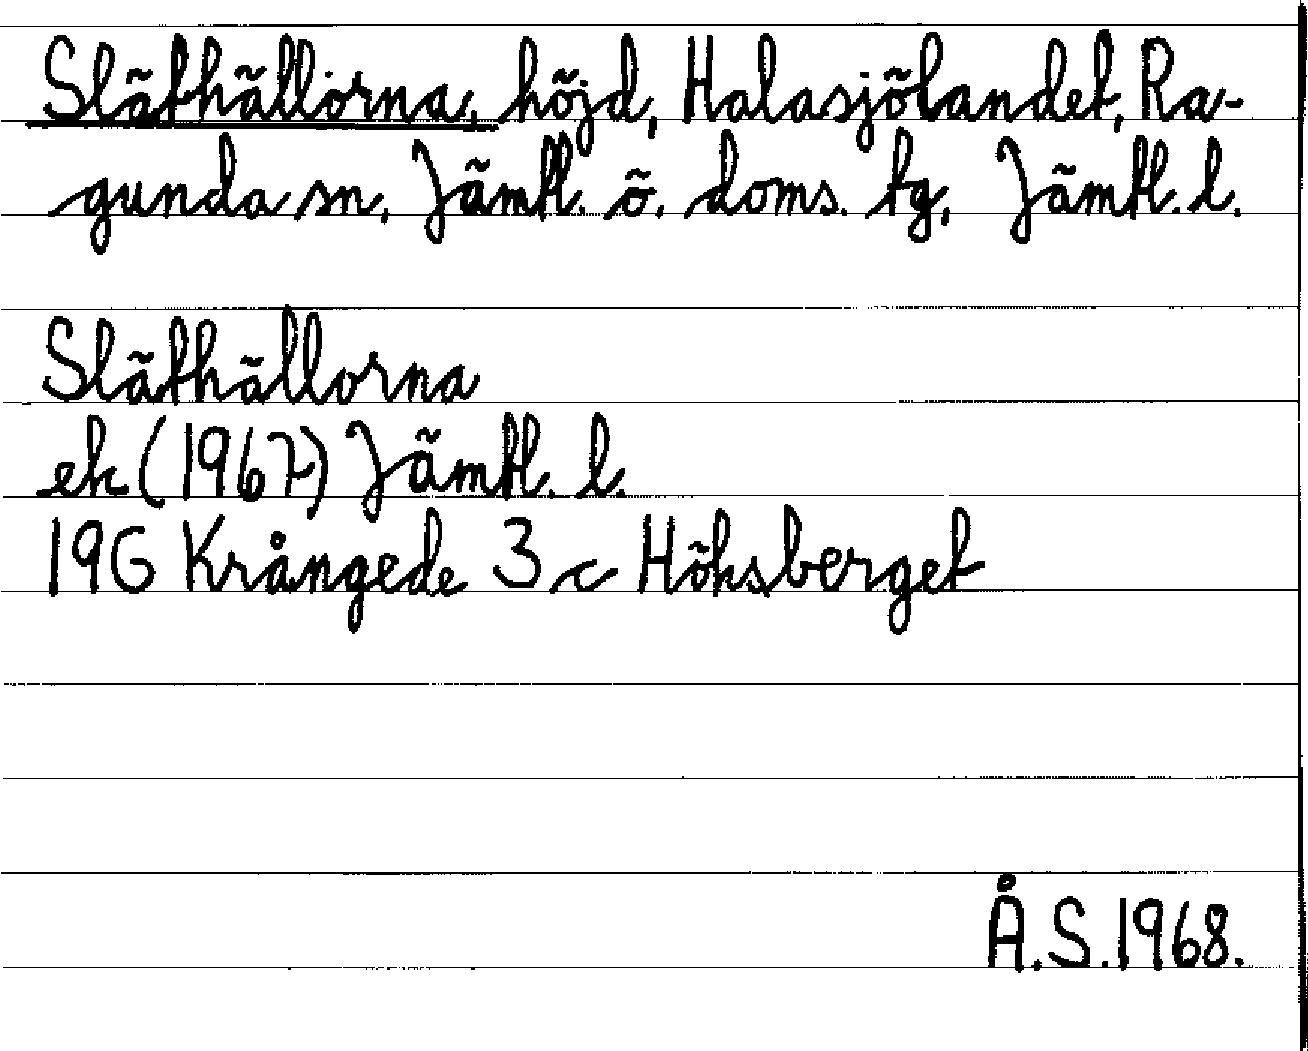 Släthällorna, höjd, Halasjölandet, Ra-
gunda sn. Jämtl. ö. doms. tg, Jämtl. l.
Släthällorna
ek (1967) Jämtl. l.
19G Krångede 3 c Höksberget
Å.S.1968.